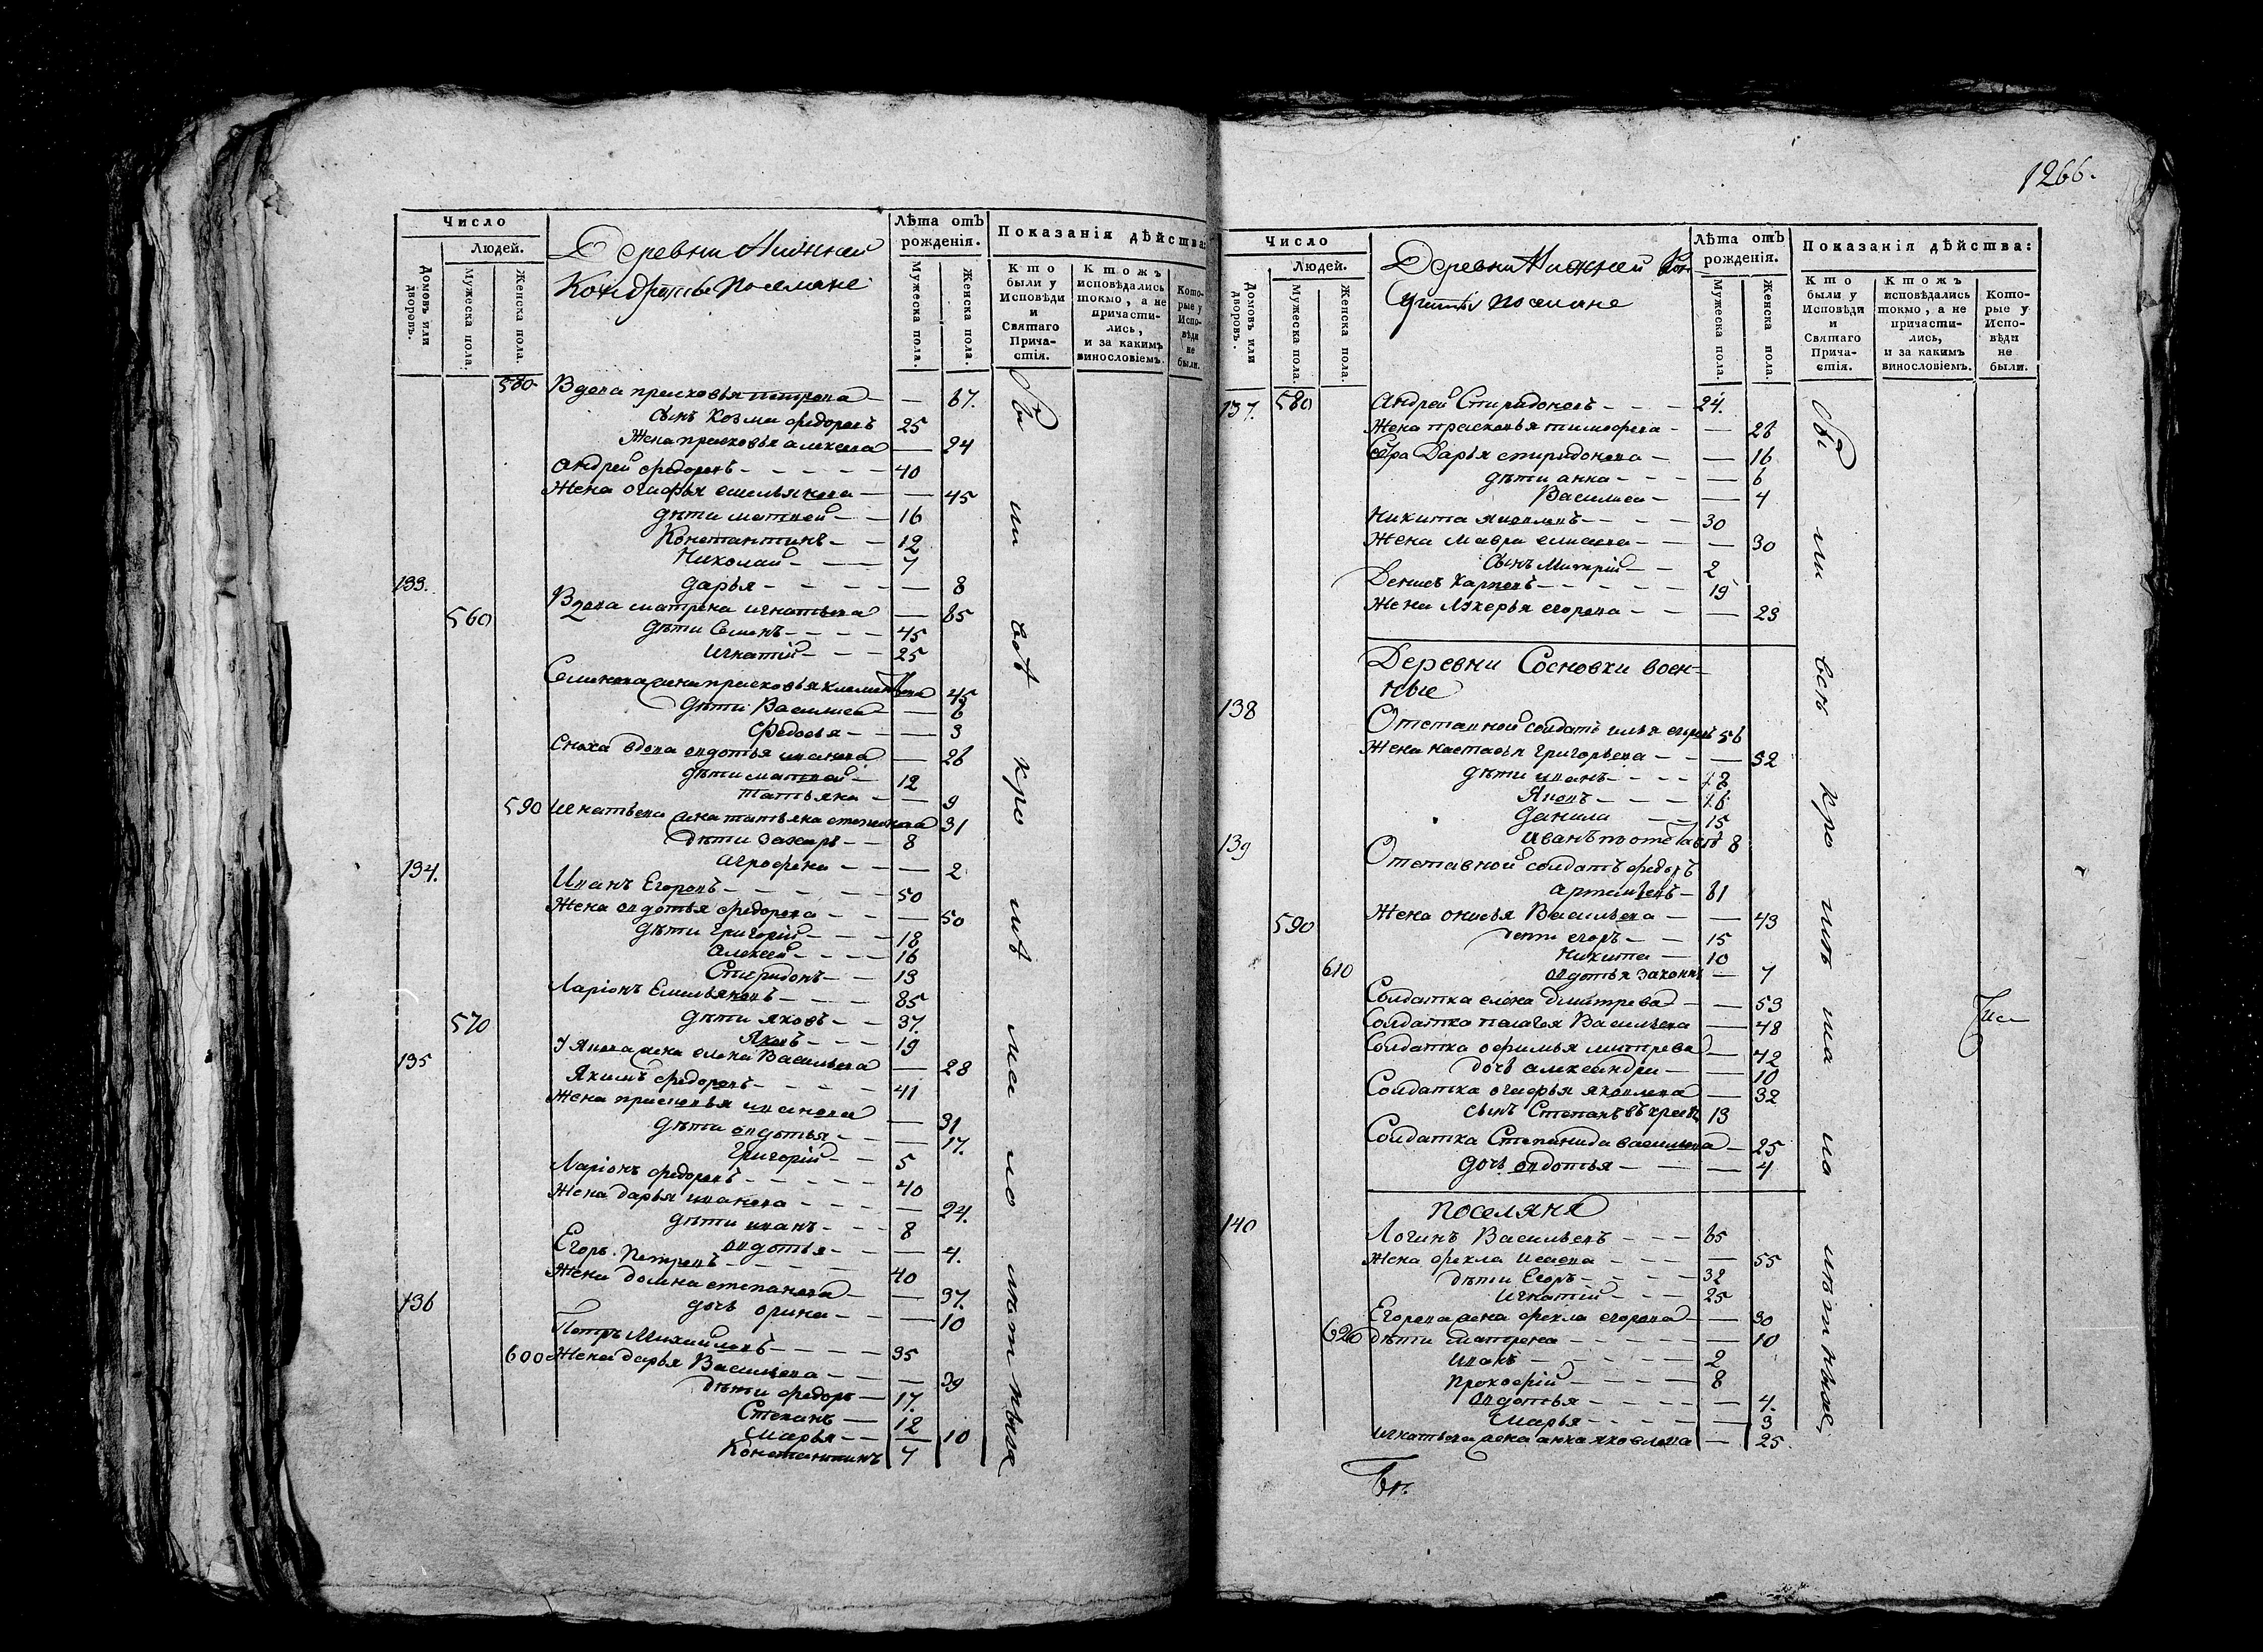 Число
Людей.
Домовъ или дворовъ.
Мужеска пола.
Женска пола.
Деревни Нижней
поселяне
Лѣта отъ
рожденія.
Мужеска пола.
Женска пола.
Показанія дѣйства:
Кто были у Исповѣди и Святаго Причастія.
Ктожъ исповѣдались токмо, а не причастились, и за какимъ винословіемъ.
Которые у Исповѣди не были.
580 Вдова прасковья петрова — — 67.
сынъ козма федоровъ 25
Жена прасковья алексеева — 24
андрей федоровъ - - - - - 40
Жена огафья емельянова — — 45
дѣти матвей — - 16
Константинъ - - 12
Николай - - - 7
133. дарья - - - - — 8
Вдова матрена игнатьева — 85
560 дѣти Семенъ - - - - 45
игнатій - - - 25
Семенова жена прасковья — 45
дѣти Василиса — 6
Федосья - — 3
Сноха вдова овдотья иванова — 26
дѣти матвей - 12
татьяна - — 9
590 Игнатьева жена татьяна 31
дѣти захаръ - - 8
агрофена - - — 2
134. Иванъ Егоровъ - - - - - 50
Жена овдотья федорова - - — 50
дѣти григорій - - - 18
алексей - - - - 16
Спиридонъ - - 13
Ларіонъ Емельяновъ - - - 85
570 дѣти яковъ - - 37.
Яковъ - - - 19
135 жена елена Васильева — 28
Якимъ федоровъ - - - - 41
Жена прасковья иванова — 31
дѣти овдотья - - — 17.
Григорій - - 5
Ларіонъ федоровъ - - - - - 40
Жена дарья иванова - - - — 24.
дѣти иванъ - - - 8
овдотья - - — 4.
Егоръ Петровъ - - - - - 40
Жена домна степанова - — 37.
136 дочь орина - - — 10
Петръ Михайловъ - - - - 35
600 Жена дарья Васильева - - - — 39
дѣти федоръ — 17.
Степанъ — 12
марья - - — 10
Константинъ 7
1266.
Число
Людей.
Домовъ или дворовъ.
Мужеска пола.
Женска пола.
Деревни Нижней Кон
поселяне
Лѣта отъ
рожденія.
Мужеска пола.
Женска пола.
Показанія дѣйства:
Кто были у Исповѣди и Святаго Причастія.
Ктожъ исповѣдались токмо, а не причастились, и за какимъ винословіемъ.
Которые у Исповѣди не были.
137. 580 Андрей Спиридоновъ - - - 24.
Жена прасковья тимофеева - — 26
Сестра Дарья спиридонова - — 16
дѣти анна - - - — 6
Василиса - — 4
Никита яковлевъ - - - - 30
Жена мавра елисеева - - — 30
Сынъ Митрій - - 2
Денисъ карповъ - - - - - 19
Жена лукерья егорова - - — 23
Деревни Сосновки воен-
ные
138
Отставной солдатъ илья егоровъ 56
Жена настасья григорьева - - — 52
дѣти иванъ - - - - 18
Яковъ - - - - 16
данила - - 15
139 иванъ 8
Отставной солдатъ федоръ
— 61
590 Жена Васильева - — 43
дети егоръ - - 15
Никита — 10
610 овдотья — 7
Солдатка елена дмитрева — — 53
Солдатка палагея Васильева — 48
Солдатка офимья митрева — 42
дочь александра — — 10
Солдатка огафья яковлева — 32
сынъ Степанъ 13
Солдатка Степанида васильева — 25
дочь овдотья — — — 4
поселяне
140 Логинъ Васильевъ - - - 65
Жена фекла исаева - - - — 55
дѣти Егоръ - - - - 32
игнатій - - - 25
Егорова жена фекла егорова - — 30
620 дѣти матрена - - - - - — 10
иванъ - - - - - 2
прокофій - - - - - 8
овдотья - - - - - — 4.
марья - - - - - — 3
игнатьева жена анна яковлева — 25.